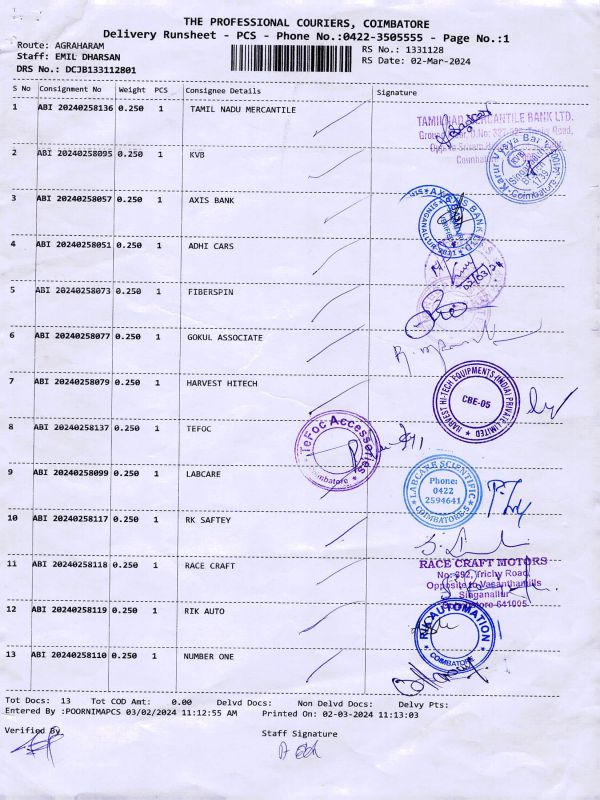 THE PROFESSIONAL COURIERS, COIMBATORE
Delivery Runsheet - PCS - Phone No.:0422-3505555 - Page No.:1
Route: AGRAHARAM
RS No.: 1331128
Staff: EMIL DHARSAN
RS Date: 02-Mar-2024
DRS No.: DCJB133112801
S No Consignment No Weight PCS Consignee Details Signature
1 ABI 20240258136 0.250 1 TAMIL NADU MERCANTILE
TAMILNAD MERCANTILE BANK LTD.
2 ABI 20240258095 0.250 1 KVB
Karur Vysya Bank
Singanallur
1736
Coimbatore
3 ABI 20240258057 0.250 1 AXIS BANK
AXIS BANK LTD.
SINGANALLUR
4 ABI 20240258051 0.250 1 ADHI CARS
02/03/24
5 ABI 20240258073 0.250 1 FIBERSPIN
6 ABI 20240258077 0.250 1 GOKUL ASSOCIATE
7 ABI 20240258079 0.250 1 HARVEST HITECH
HARVEST HI-TECH EQUIPMENTS (INDIA) PRIVATE LIMITED
CBE-05
8 ABI 20240258137 0.250 1 TEFOC
TeFoc Accessories
Coimbatore
9 ABI 20240258099 0.250 1 LABCARE
LABCARE SCIENTIFIC
Phone:
0422
2594641
COIMBATORE-5
10 ABI 20240258117 0.250 1 RK SAFTEY
11 ABI 20240258118 0.250 1 RACE CRAFT
RACE CRAFT MOTORS
No: 392, Trichy Road,
Opposite to Vasanthamills
Singanallur
Coimbatore-641005
12 ABI 20240258119 0.250 1 RIK AUTO
RIK AUTOMATION
COIMBATORE
13 ABI 20240258110 0.250 1 NUMBER ONE
Tot Docs: 13 Tot COD Amt: 0.00 Delvd Docs: Non Delvd Docs: Delvy Pts:
Entered By :POORNIMAPCS 03/02/2024 11:12:55 AM Printed On: 02-03-2024 11:13:03
Verified By
Staff Signature